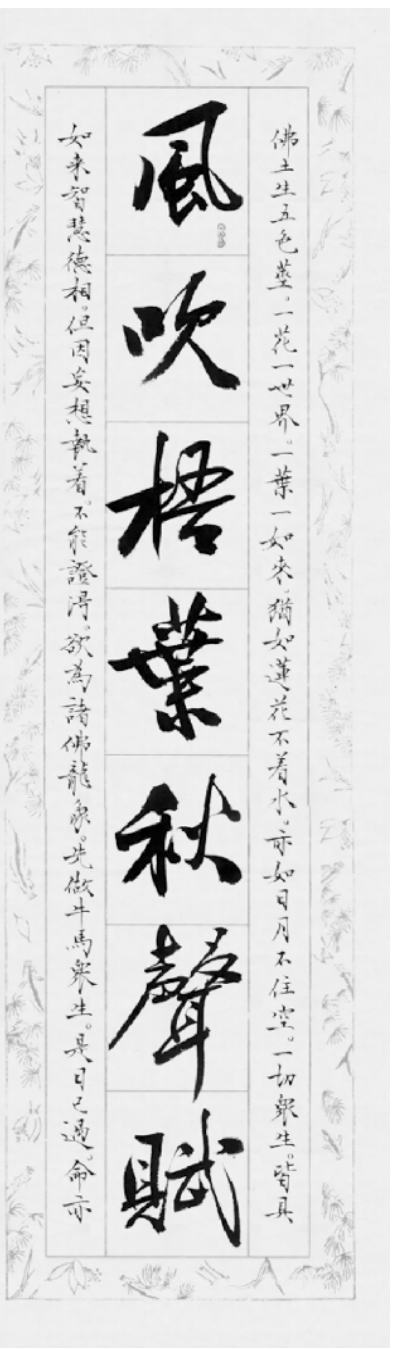 佛土生五色莖。一花一世界。一葉一如来。猶如蓮花不着水。亦如日月不住空。一切衆生。皆具
風吹梧葉秋聲賦
如来智慧德相。但因妄想執着。不能證得。欲為諸佛龍象。先做牛馬衆生。是日已過。命亦